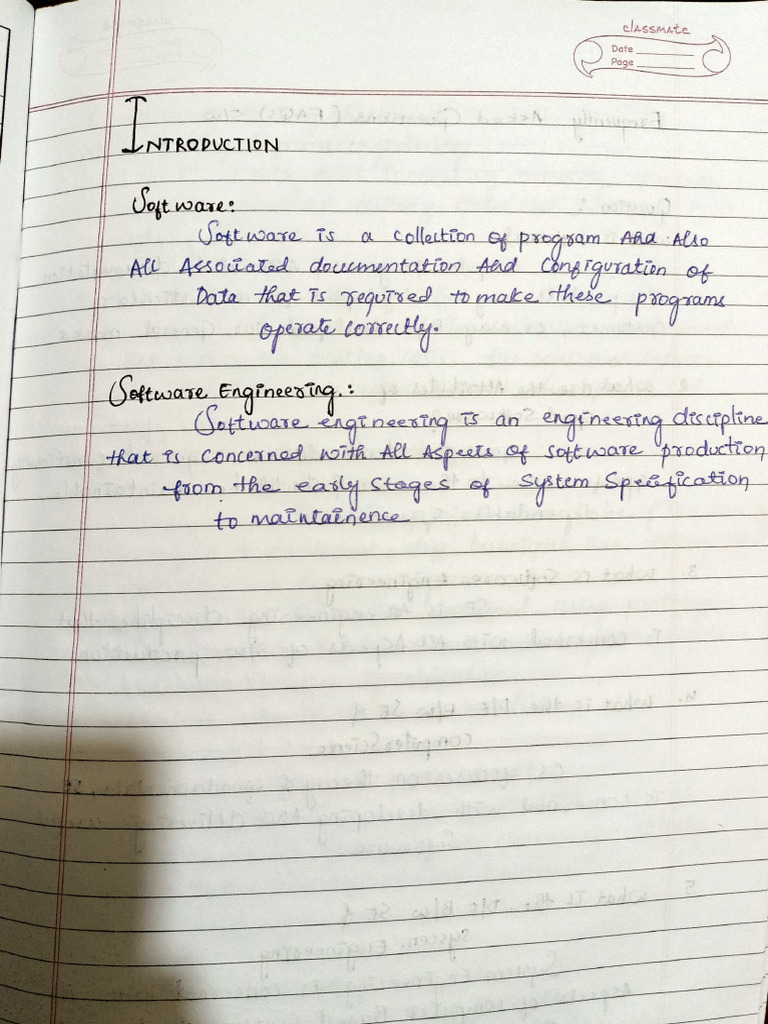 classmate
Date
Page
INTRODUCTION
Software:
Software is a collection of program And Also
All Associated documentation And Configuration of
Data that is required to make these programs
operate correctly.
Software Engineering.:
Software engineering is an engineering discipline
that is concerned with All Aspects of software production
from the early stages of System Specification
to maintainence